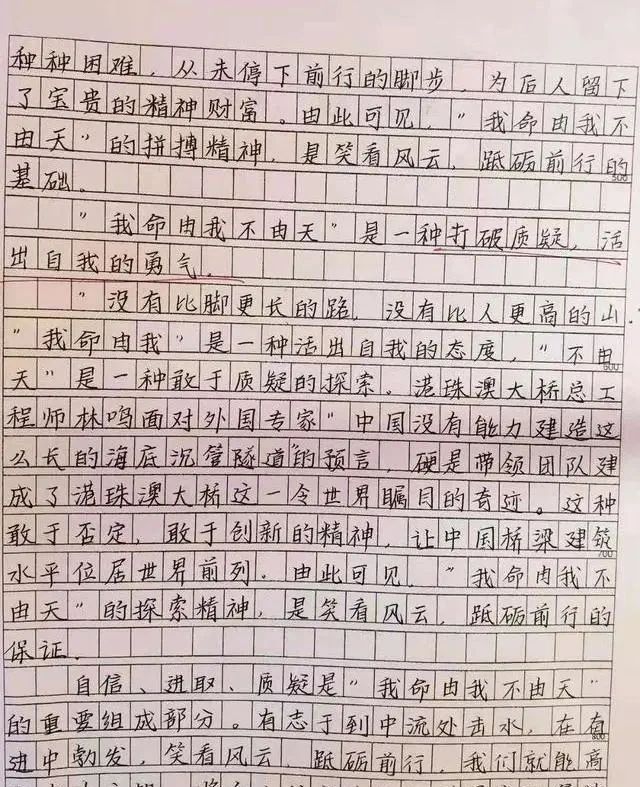 种种困难，从未停下前行的脚步，为后人留下
了宝贵的精神财富。由此可见，"我命由我不
由天"的拼搏精神，是笑看风云，砥砺前行的
500
基础。
"我命由我不由天"是一种打破质疑，活
出自我的勇气。
"没有比脚更长的路，没有比人更高的山."
"我命由我"是一种活出自我的态度，"不由
600
天"是一种敢于质疑的探索。港珠澳大桥总工
程师林鸣面对外国专家"中国没有能力建造这
么长的海底沉管隧道"的预言，硬是带领团队建
成了港珠澳大桥这一令世界瞩目的奇迹。这种
敢于否定，敢于创新的精神，让中国桥梁建筑
700
水平位居世界前列。由此可见，"我命由我不
由天"的探索精神，是笑看风云，砥砺前行的
保证.
自信、进取、质疑是"我命由我不由天"
的重要组成部分。有志于到中流处击水，在奋
800
进中勃发，笑看风云，砥砺前行，我们就能高